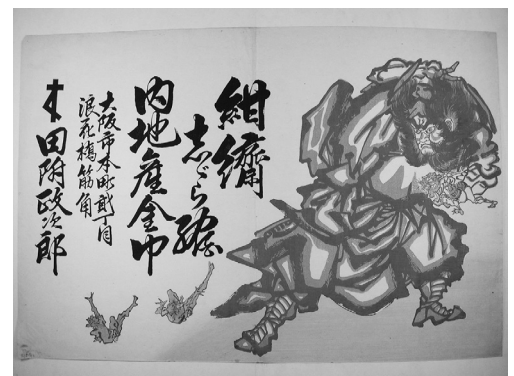 紺
志ゞら
内地産金巾
大阪市本町弐丁目
浪花橋筋角
田附政次郎